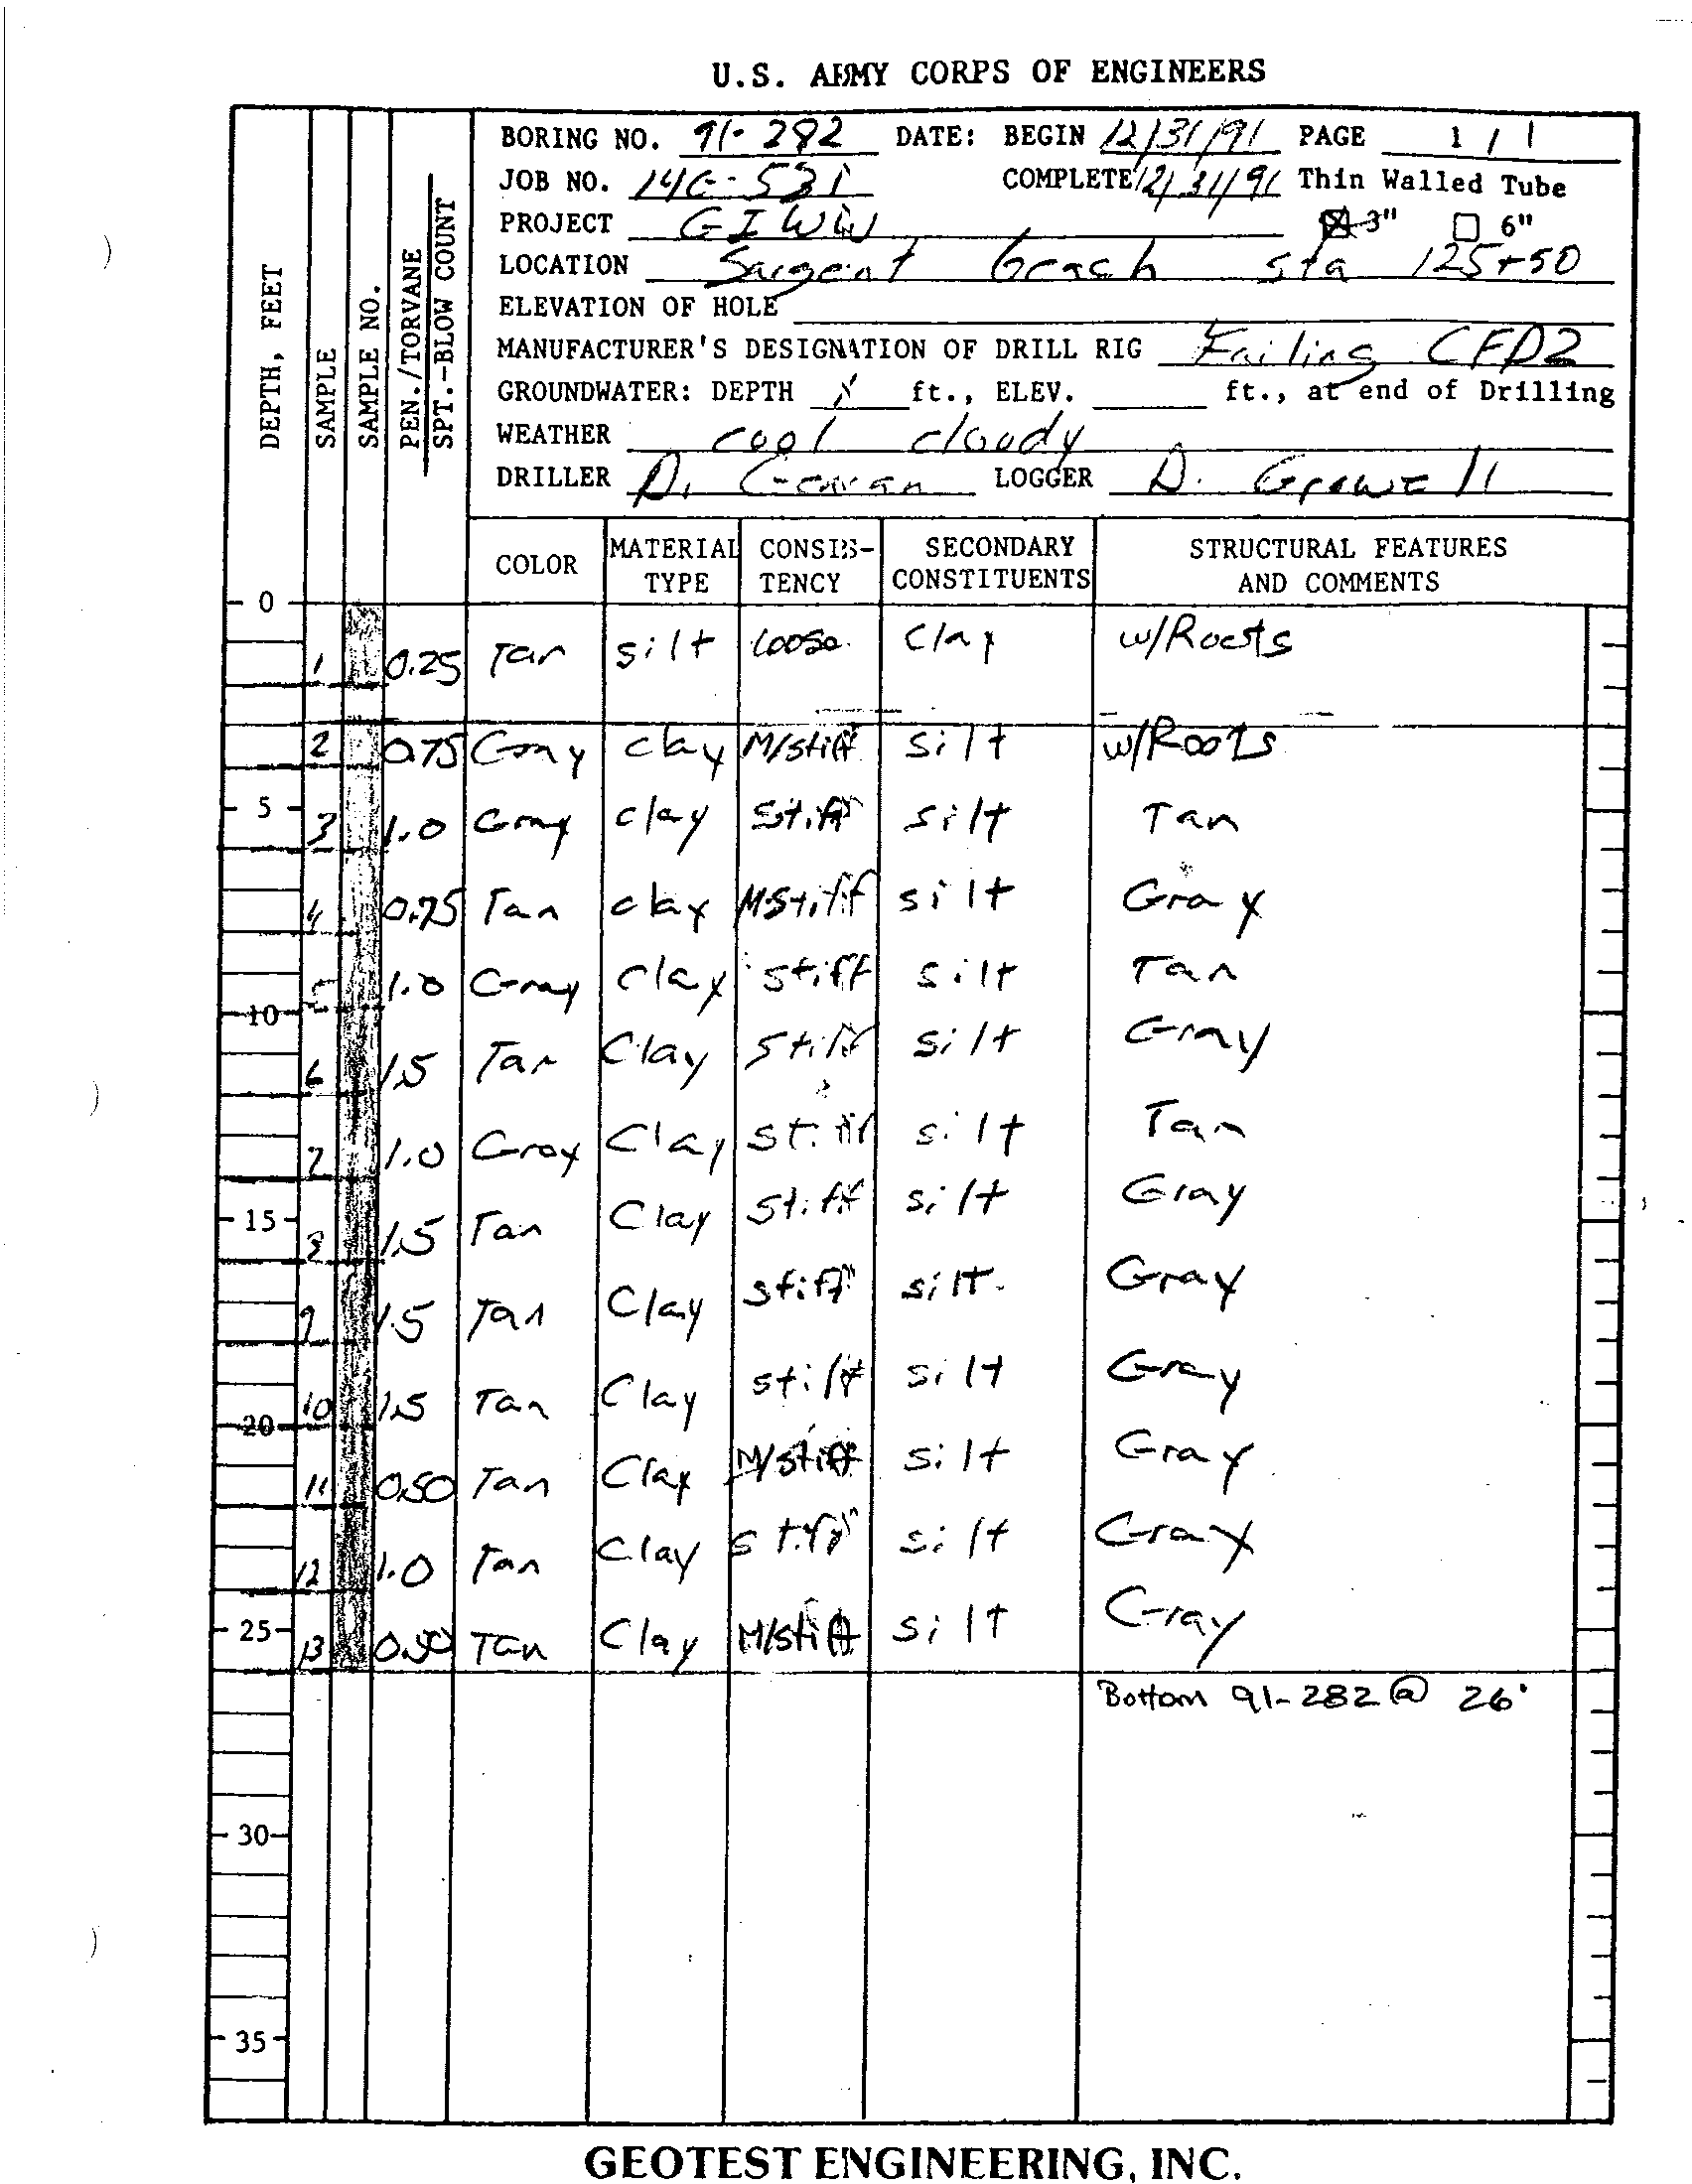 U.S. ARMY CORPS OF ENGINEERS
BORING NO. 91-282 DATE: BEGIN 12/31/91 PAGE 1 / 1
JOB NO. 14G-531 COMPLETE 12/31/91 Thin Walled Tube
PROJECT GIWW ☒ 3" ☐ 6"
LOCATION Sargent Beach sta 125+50
ELEVATION OF HOLE
MANUFACTURER'S DESIGNATION OF DRILL RIG Failing CFD2
GROUNDWATER: DEPTH ft., ELEV. ft., at end of Drilling
WEATHER cool cloudy
DRILLER D. LOGGER D.
DEPTH, FEET
SAMPLE
SAMPLE NO.
PEN./TORVANE
SPT.-BLOW COUNT
COLOR MATERIAL TYPE CONSIS-TENCY SECONDARY CONSTITUENTS STRUCTURAL FEATURES AND COMMENTS
0
1 0.25 Tan silt loose. Clay w/Roots
2 0.75 Gray clay M/stiff silt w/Roots
5
3 1.0 Gray clay stiff silt Tan
4 0.75 Tan clay M.stiff silt Gray
5 1.0 Gray clay stiff silt Tan
10
6 1.5 Tan Clay stiff silt Gray
7 1.0 Gray Clay stiff silt Tan
15
8 1.5 Tan Clay stiff silt Gray
9 1.5 Tan Clay stiff silt. Gray
10 1.5 Tan Clay stiff silt Gray
20
11 0.50 Tan Clay M/stiff silt Gray
12 1.0 Tan Clay stiff silt Gray
25
13 0.50 Tan Clay M/stiff silt Gray
Bottom 91-282 @ 26'
30
35
GEOTEST ENGINEERING, INC.